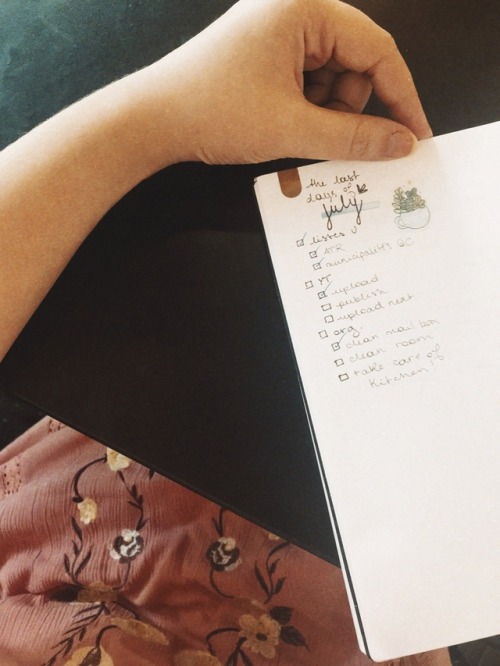 the last
days of
july
listes
ATR
municipalités QC
YT
upload
publish
upload next
org.
clean mail box
clean room
take care of
kitchen!